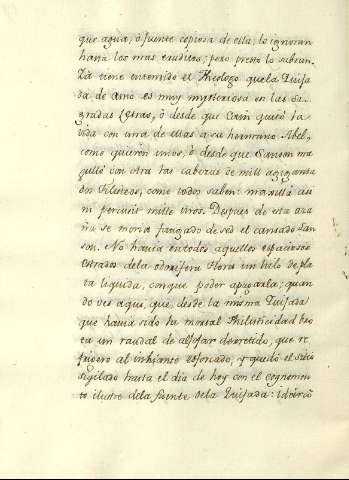 que agua, ò fuente copiosa de esta; lo ignoran
hasta los mas eruditos; pero presto lo
Ya tiene entendido el Theologo que la Quija
da de Asno es muy mysteriosa en las Sa
gradas Letras, ò desde que Cain quitó la
vida con una de ellas a su hermano Abel,
como quieren unos, ò desde que Sanson ma
gulló con otra las cabezas de mill agiganta
dos Filisteos, como todos saben: maxilla asi
ni percussi mille viros. Despues de esta aza
ña se moria fatigado de sed el cansado San
son. No havia en todos aquellos espaciosos
estrados de la odorifera Flora un hilo de pla
ta liquida, con que poder apagarla; quan
do ves aqui, que desde la misma Quijada
que havia sido la mortal Philisticidad bro
ta un raudal de aljofar derretido, que re
frigero al esforcado, y quedó el sitio
sigilado hasta el dia de hoy con el cognomen
to ilustre de la fuente de la Quijada: idcircò